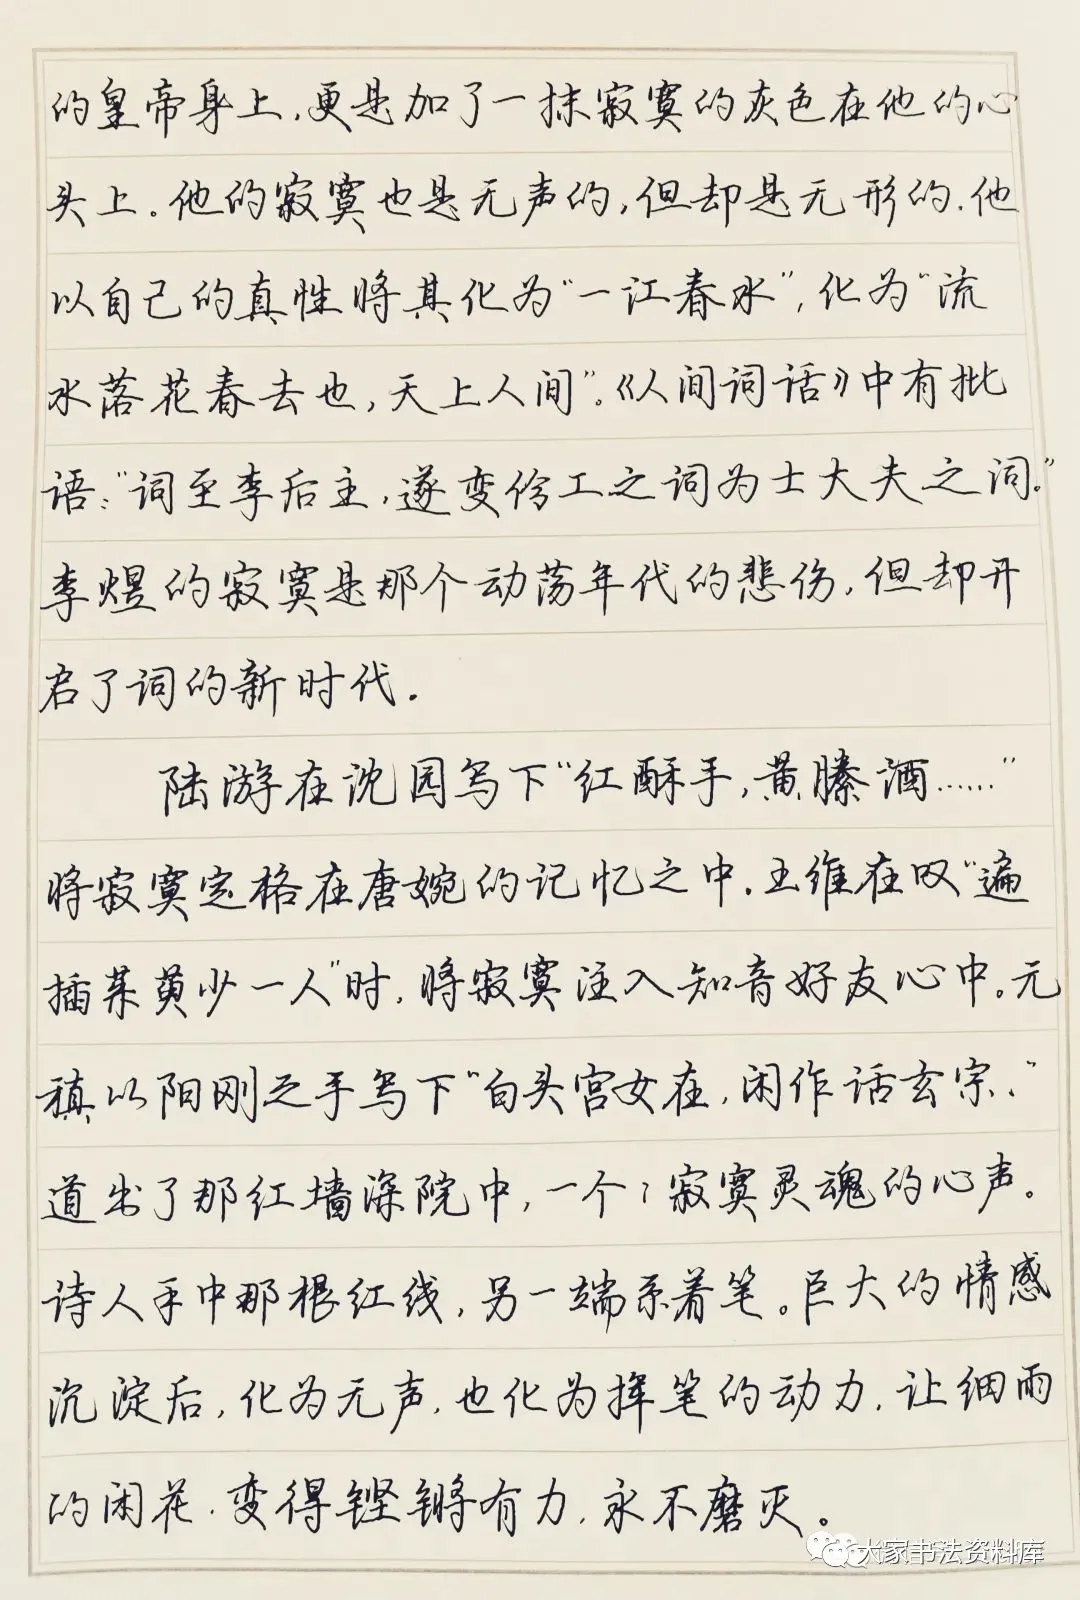 的皇帝身上,更是加了一抹寂寞的灰色在他的心
头上。他的寂寞也是无声的,但却是无形的.他
以自己的真性将其化为“一江春水”,化为“流
水落花春去也,天上人间”。《人间词话》中有批
语:“词至李后主,遂变伶工之词为士大夫之词。”
李煜的寂寞是那个动荡年代的悲伤,但却开
启了词的新时代.
陆游在沈园写下“红酥手,黄滕酒……”
将寂寞定格在唐婉的记忆之中.王维在叹“遍
插茱萸少一人”时,将寂寞注入知音好友心中。元
稹以阳刚之手写下“白头宫女在,闲作话玄宗.”
道出了那红墙深院中,一个个寂寞灵魂的心声。
诗人手中那根红线,另一端系着笔。巨大的情感
沉淀后,化为无声.也化为挥笔的动力.让细雨
的闲花.变得铿锵有力.永不磨灭。
大家书法资料库